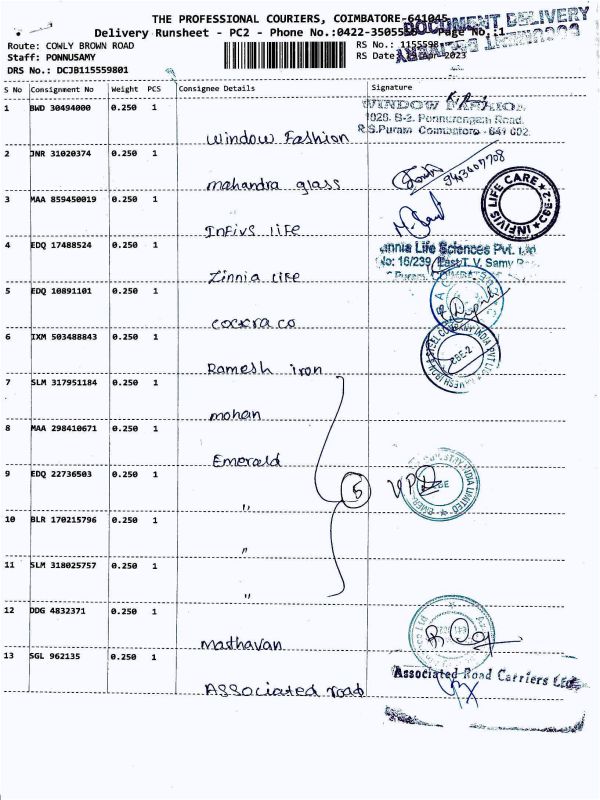 THE PROFESSIONAL COURIERS, COIMBATORE-641045
DOCUMENT DELIVERY
Delivery Runsheet - PC2 - Phone No.:0422-3505556 Page No.:1
Route: COWLY BROWN ROAD
RS No.: 1155598
Staff: PONNUSAMY
RS Date: 2023
DRS No.: DCJB115559801
S No Consignment No Weight PCS Consignee Details Signature
1 BWD 30494000 0.250 1 Window Fashion
WINDOW FASHION
102B, B-2, Ponnurengam Road,
R.S.Puram Coimbatore - 641 002.
2 JNR 31020374 0.250 1 mahandra glass
3 MAA 859450019 0.250 1 Infivs life
INFIVIS LIFE CARE CBE-2
4 EDQ 17488524 0.250 1 Zinnia Life
Zinnia Life Sciences Pvt. Ltd
No: 16/239, East T. V. Samy
Puram, COIMBATORE
5 EDQ 10891101 0.250 1 cockraco
6 IXM 503488843 0.250 1 Ramesh iron
RAMESH IRON & STEEL COMPANY INDIA PVT LTD CBE-2
7 SLM 317951184 0.250 1 mohan
8 MAA 298410671 0.250 1 Emerald
9 EDQ 22736503 0.250 1 "
5
INDUSTRY INDIA LIMITED
10 BLR 170215796 0.250 1 "
11 SLM 318025757 0.250 1 "
12 DDG 4832371 0.250 1 mathavan
13 SGL 962135 0.250 1 Associated road
Associated Road Carriers Ltd.